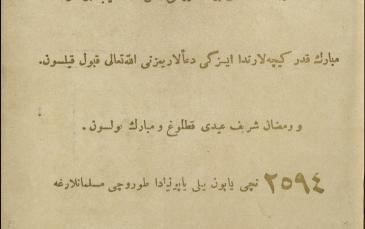 مبارك قدر كيچه‌لارندا ايزگى دعألاريمزنى الله‌تعالى قبول قيلسون.
و رمضان شريف عيدى قطلوغ و مبارك بولسون.
٢٥٩٤ نچى ياپون يلى ياپونيادا طوروچى مسلمانلارغه